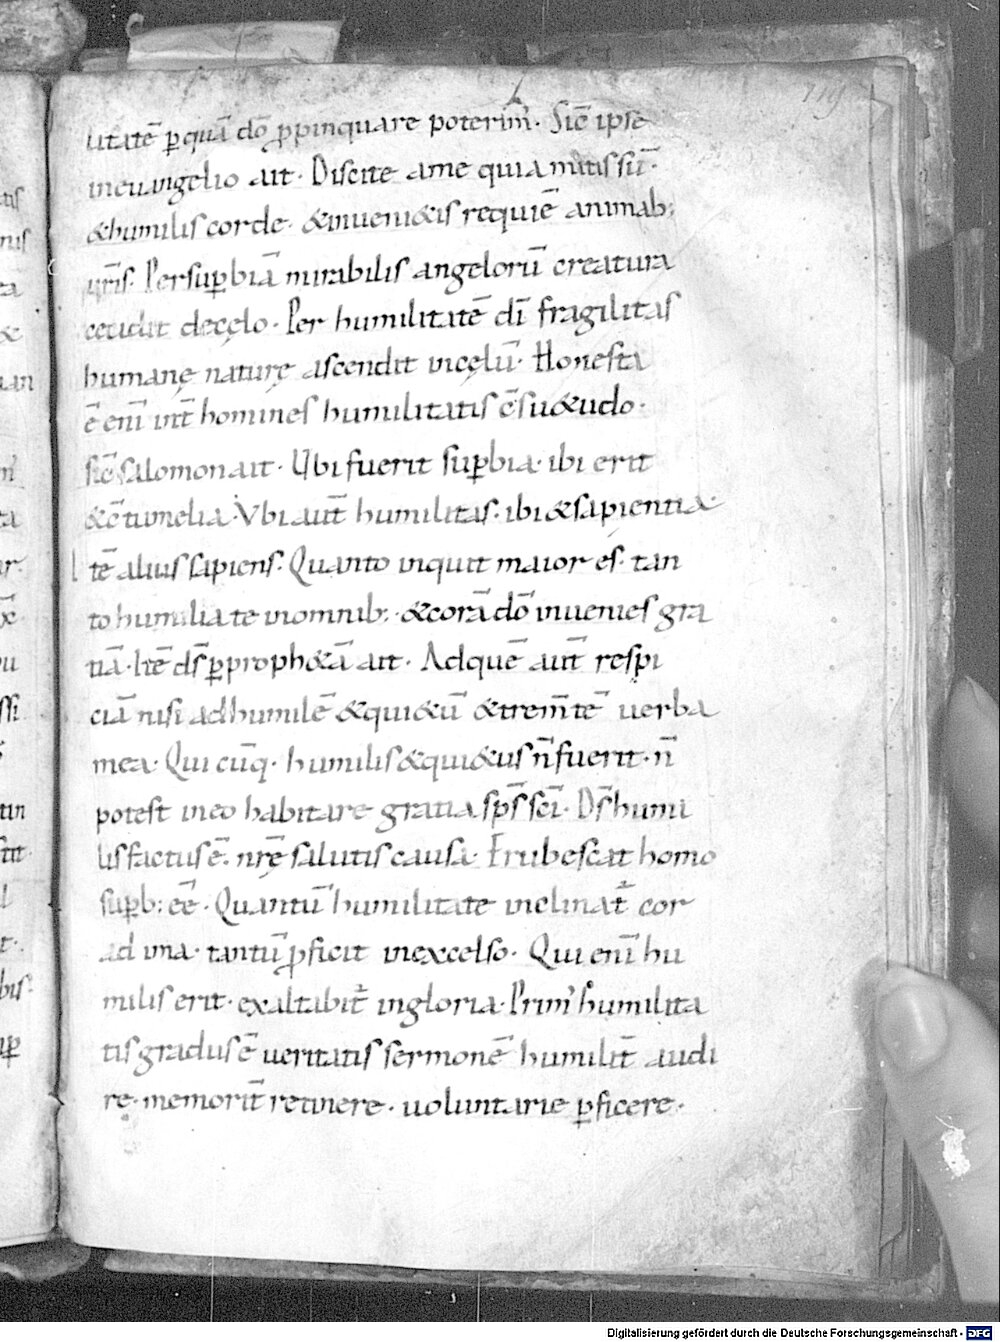 119
litatē ꝑquā dō ꝓpinquare poterim̄. Sic̄ ipse
ineuangelio ait. Discite ame quia mitis sū.
&humilis corde. &inueni&is requiē animab;
ur̄is. Persuꝑbiā mirabilis angelorū creatura
cecidit decęlo. Per humilitatē dī fragilitas
humanę naturę ascendit incęlū. Honesta
ē enī int̄ homines humilitatis c̄su&udo.
sic̄ salomon ait. Ubi fuerit suꝑbia. ibi erit
&c̄tumelia. Vbi aut̄ humilitas. ibi &sapientia
Itē alius sapiens. Quanto inquit maior es. tan
to humilia te inomnib;. &corā dō inuenies gra
tiā. Itē ds̄ ꝑproph&ā ait. Adquē aut̄ respi
ciā nisi adhumilē &qui&ū &trem̄tē uerba
mea. Qui cūq. humilis &qui&us n̄ fuerit. n̄
potest ineo habitare gratia sps̄ sc̄i. Ds̄ humi
lis factus ē. nr̄ę salutis causa. Erubescat homo
suꝑb; eē. Quantū humilitate inclinat̄ cor
ad ima. tantū ꝓficit inexcelso. Qui enī hu
milis erit. exaltabit̄ ingloria. Prim' humilita
tis gradus ē ueritatis sermonē humilit̄ audi
re. memorit̄ retinere. uoluntarie ꝑficere.
Digitalisierung gefördert durch die Deutsche Forschungsgemeinschaft - DFG